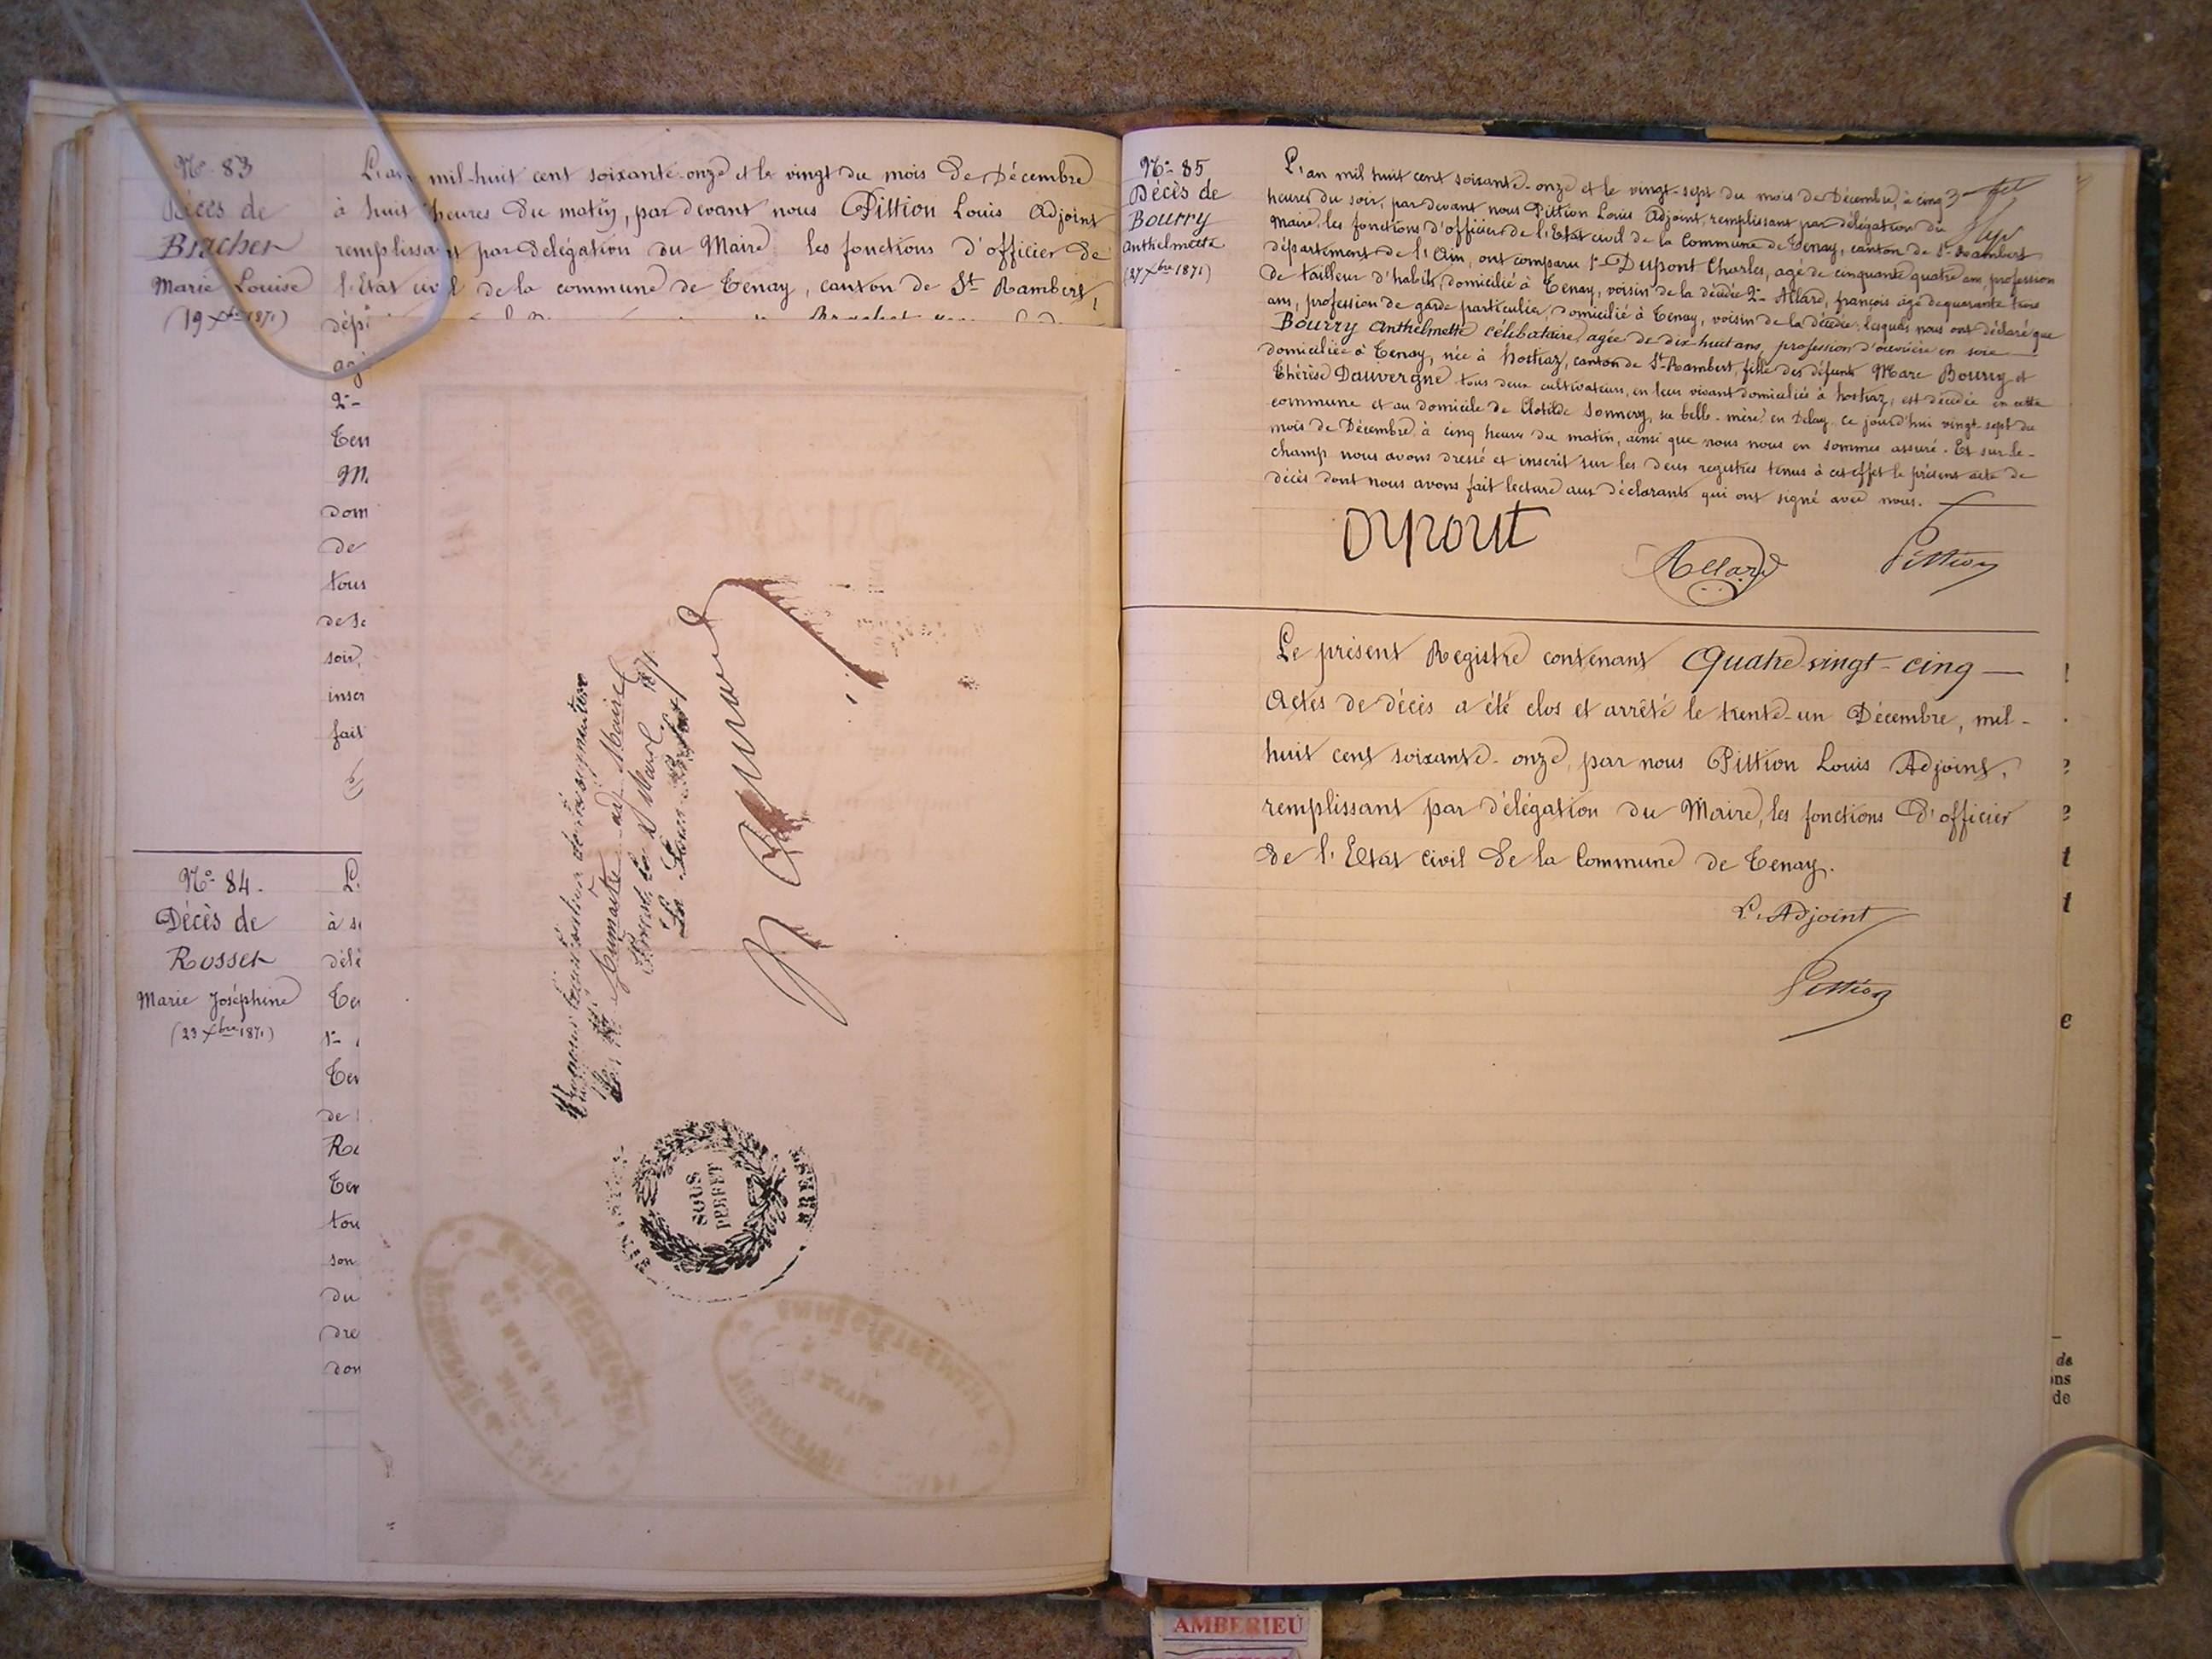 N° 83
Décès de
Brachet
Marie Louise
(19 Xbre 1871)
L'an mil-huit cent soixante-onze et le vingt du mois de Décembre
à huit heures du matin, par devant nous Pittion Louis Adjoint
remplissant par délégation du Maire les fonctions d'officier de
l'Etat civil de la commune de Tenay, canton de St Rambert,
dépt
agé
2°-
Ten
M.
dom
de
tous
de Se
soir,
inscr
fait
N° 84.
Décès de
Rosset
Marie Joséphine
(23 Xbre 1871)
L'
à se
délé
Ten
1°-
Ten
de
Ro
Ten
tou
son
du
dre
don
pour légalisation de la signature
Maire
Brest, le Mars 1871
Le Sous-Préfet
SOUS
PREFET
FINISTERE
BREST
N° 85
Décès de
Bourry
Anthelmette
(27 Xbre 1871)
L'an mil huit cent soixante-onze et le vingt-sept du mois de Décembre, à cinq
heures du soir, par devant nous Pittion Louis Adjoint, remplissant par délégation du
Maire, les fonctions d'officier de l'Etat civil de la Commune de Tenay, canton de St Rambert
département de l'Ain, ont comparu 1°- Dupont Charles, agé de cinquante quatre ans, profession
de tailleur d'habits, domicilié à Tenay, voisin de la décédée 2°- Allard, françois agé de quarante trois
ans, profession de garde particulier, domicilié à Tenay, voisin de la décédée; lesquels nous ont déclaré que
Bourry Anthelmette célibataire, agée de dix-huit ans, profession d'ouvrière en soie
domiciliée à Tenay, née à hostiaz, canton de St Rambert, fille des défunts Marc Bourry et
Thérèse Dauvergne tous deux cultivateurs, en leur vivant domiciliés à hostiaz, est décédée en cette
commune et au domicile de Clotilde Sonnery, sa belle-mère, en Delay ce jourd'hui vingt-sept du
mois de Décembre, à cinq heures du matin, ainsi que nous nous en sommes assuré. Et sur-le-
champ nous avons dressé et inscrit sur les deux registres tenus à cet effet le présent acte de
décès dont nous avons fait lecture aux déclarants qui ont signé avec nous.
Dupont
Allard
Pittion
Le présent Registre contenant Quatre-vingt-cinq
Actes de décès a été clos et arrêté le trente-un Décembre, mil-
huit cent soixante-onze, par nous Pittion Louis Adjoint,
remplissant par délégation du Maire, les fonctions d'officier
de l'Etat civil de la Commune de Tenay.
L'Adjoint
Pittion
e
t
t
e
de
ons
de
AMBERIEU